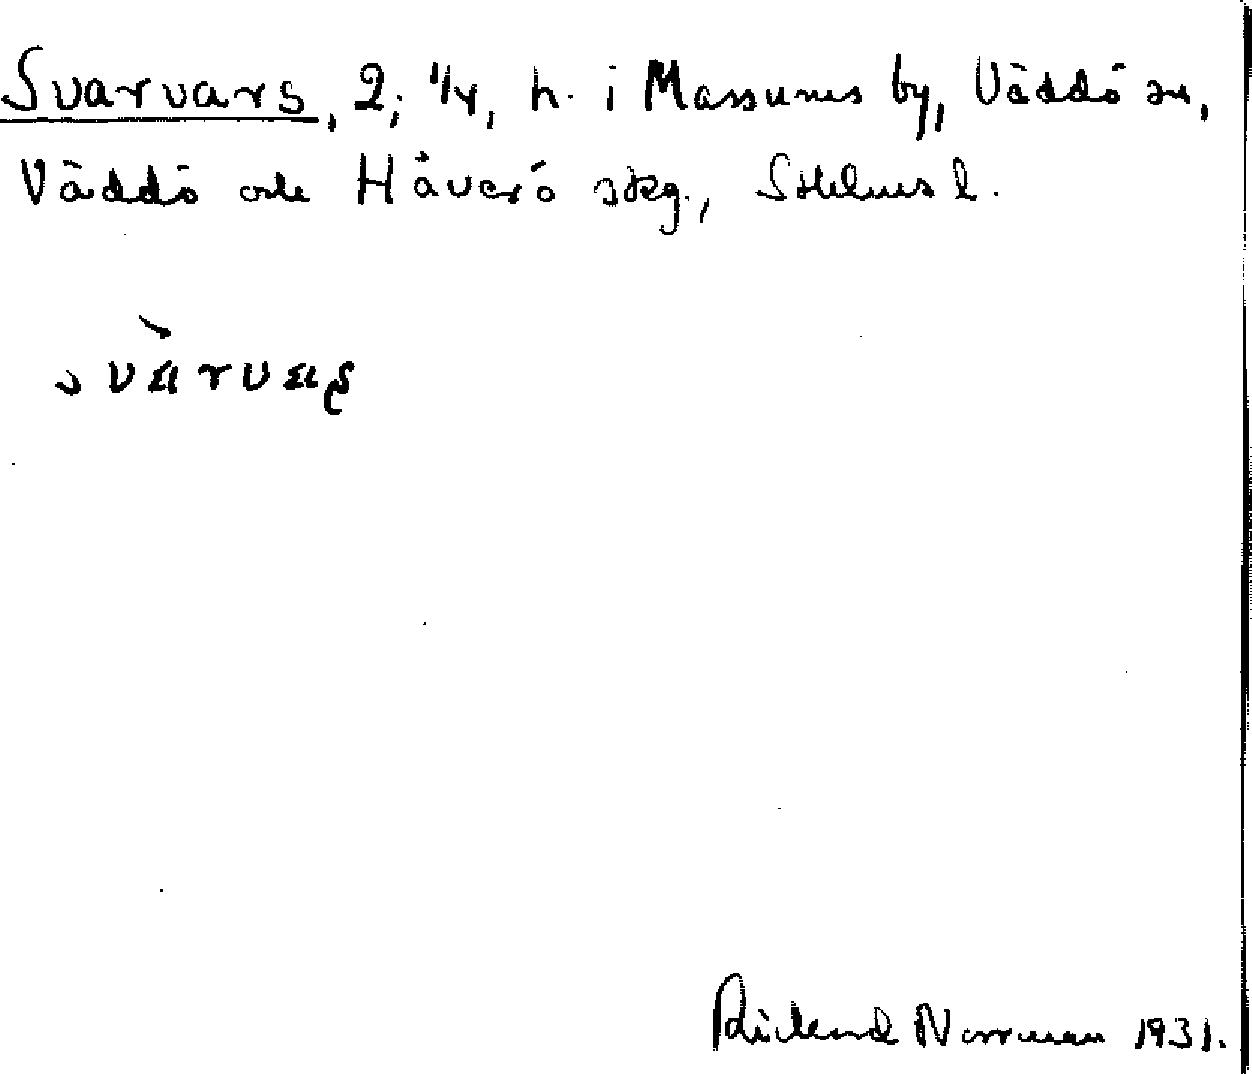 Svarvars, 2; 1/4, h. i Massums by, Väddö sn,
Väddö och Häverö skg., Sthlms l.
svàrvaʂ
Rickard Norrman 1931.